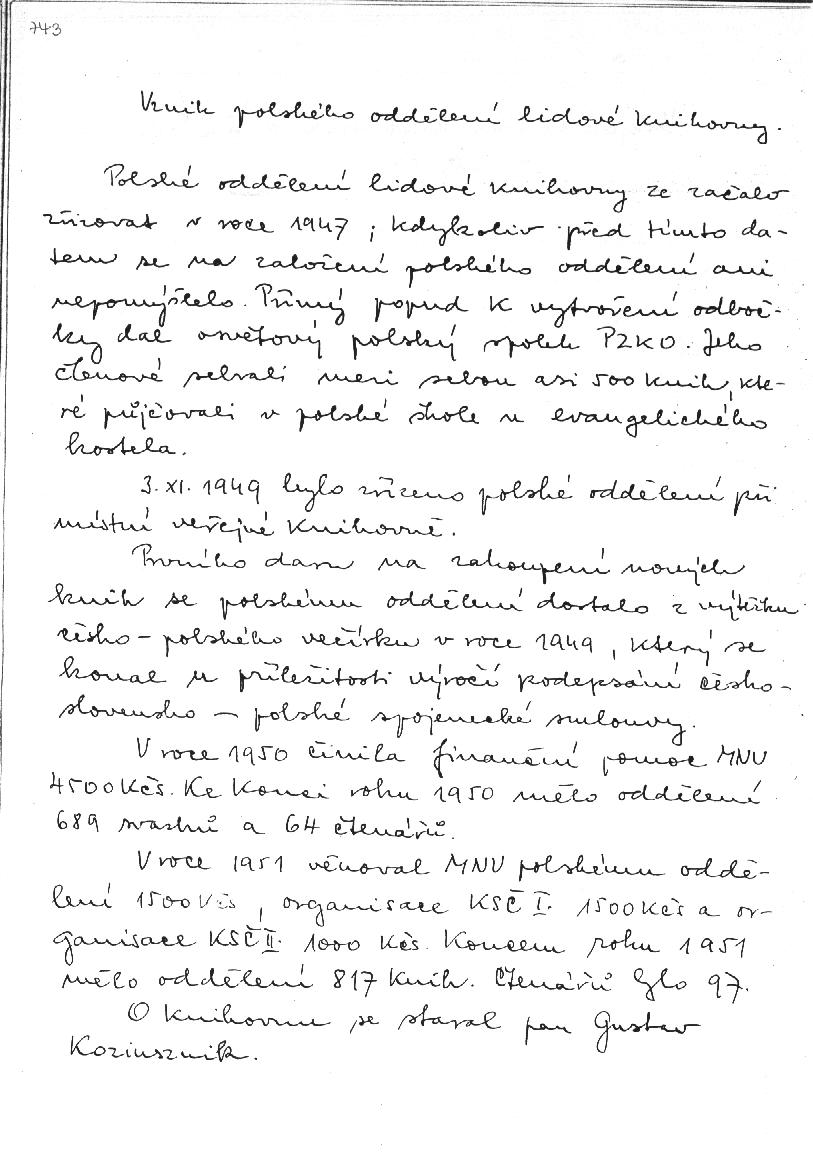 743
Vznik polského oddělení lidové knihovny.
Polské oddělení lidové knihovny ze začalo
zřizovat v roce 1947; kdykoliv před tímto da-
tem se na založení polského oddělení ani
nepomýšlelo. Přímý popud k vytvoření odboč-
ky dal osvětový polský spolek PZKO. Jeho
členové sebrali mezi sebou asi 500 knih, kte-
ré půjčovali v polské škole u evangelického
kostela.
3. XI. 1949 bylo zřízeno polské oddělení při
místní veřejné knihovně.
Prvního daru na zakoupení nových
knih se polskému oddělení dostalo z výtěžku
česko-polského večírku v roce 1949, který se
konal u příležitosti výročí podepsání česko-
slovensko - polské spojenecké smlouvy.
V roce 1950 činila finanční pomoc MNV
4500 Kčs. Ke konci roku 1950 mělo oddělení
689 svazků a 64 čtenářů.
V roce 1951 věnoval MNV polskému oddě-
lení 1500 Kčs, organisace KSČ I. 1500 Kčs a or-
ganisace KSČ II. 1000 Kčs. Koncem roku 1951
mělo oddělení 817 knih. Čtenářů bylo 97.
O knihovnu se staral pan Gustav
Koziusznik.